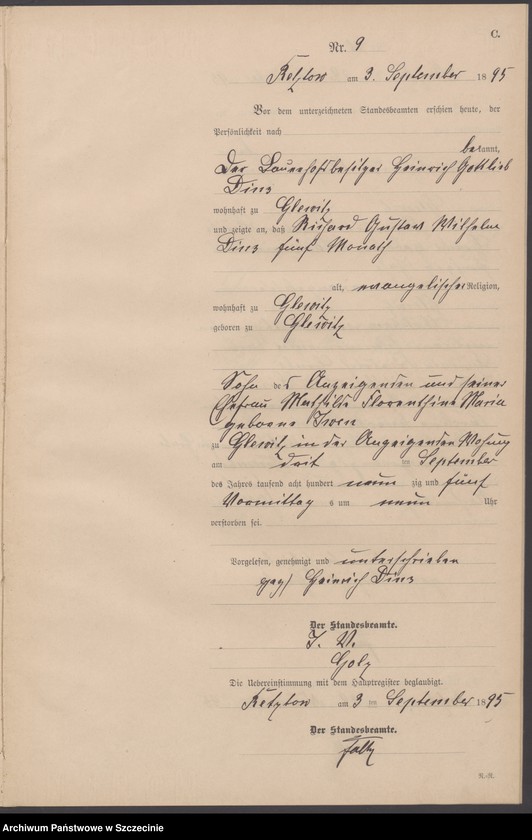 C.
Nr. 9
Retzow am 3. September 1895
Vor dem unterzeichneten Standesbeamten erschien heute, der
Persönlichkeit nach
bekannt,
der Bauerhofsbesitzer Heinrich Gottlieb
wohnhaft zu Glewitz
und zeigte an, daß Richard Gustav Wilhelm
fünf Monath
alt, evangelischer Religion,
wohnhaft zu Glewitz
geboren zu Glewitz
Sohn des Anzeigenden und seiner
Ehefrau Mathilde Florenthine Maria
geborne
zu Glewitz, in der Anzeigenden Wohung
am drit ten September
des Jahrs tausend acht hundert neun zig und fünf
Vormittag s um neun Uhr
verstorben sei.
Vorgelesen, genehmigt und unterschrieben
gez) Heinrich
Der Standesbeamte.
J. V.
Die Uebereinstimmung mit dem Hauptregister beglaubigt.
Retzow am 3 ten September 1895
Der Standesbeamte.
R.-R.
Archiwum Państwowe w Szczecinie